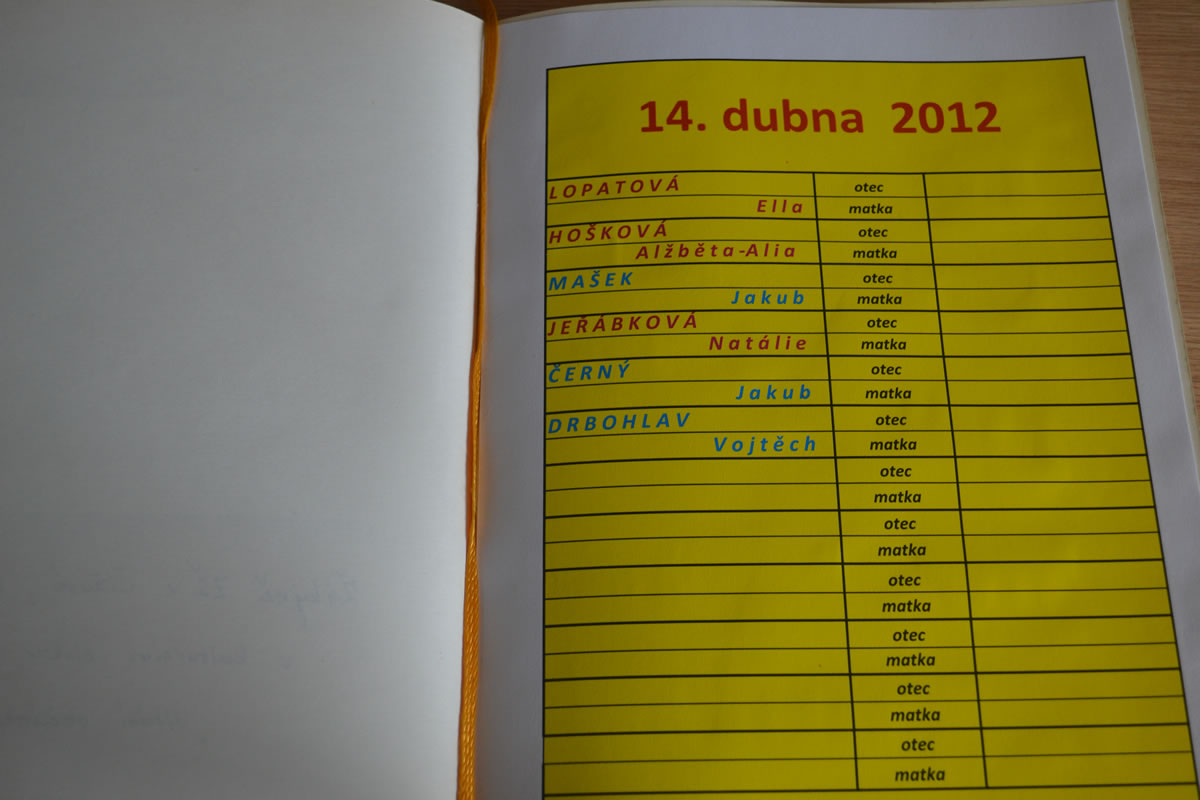 14. dubna 2012
LOPATOVÁ otec
Ella matka
HOŠKOVÁ otec
Alžběta-Alia matka
MAŠEK otec
Jakub matka
JEŘÁBKOVÁ otec
Natálie matka
ČERNÝ otec
Jakub matka
DRBOHLAV otec
Vojtěch matka
otec
matka
otec
matka
otec
matka
otec
matka
otec
matka
otec
matka